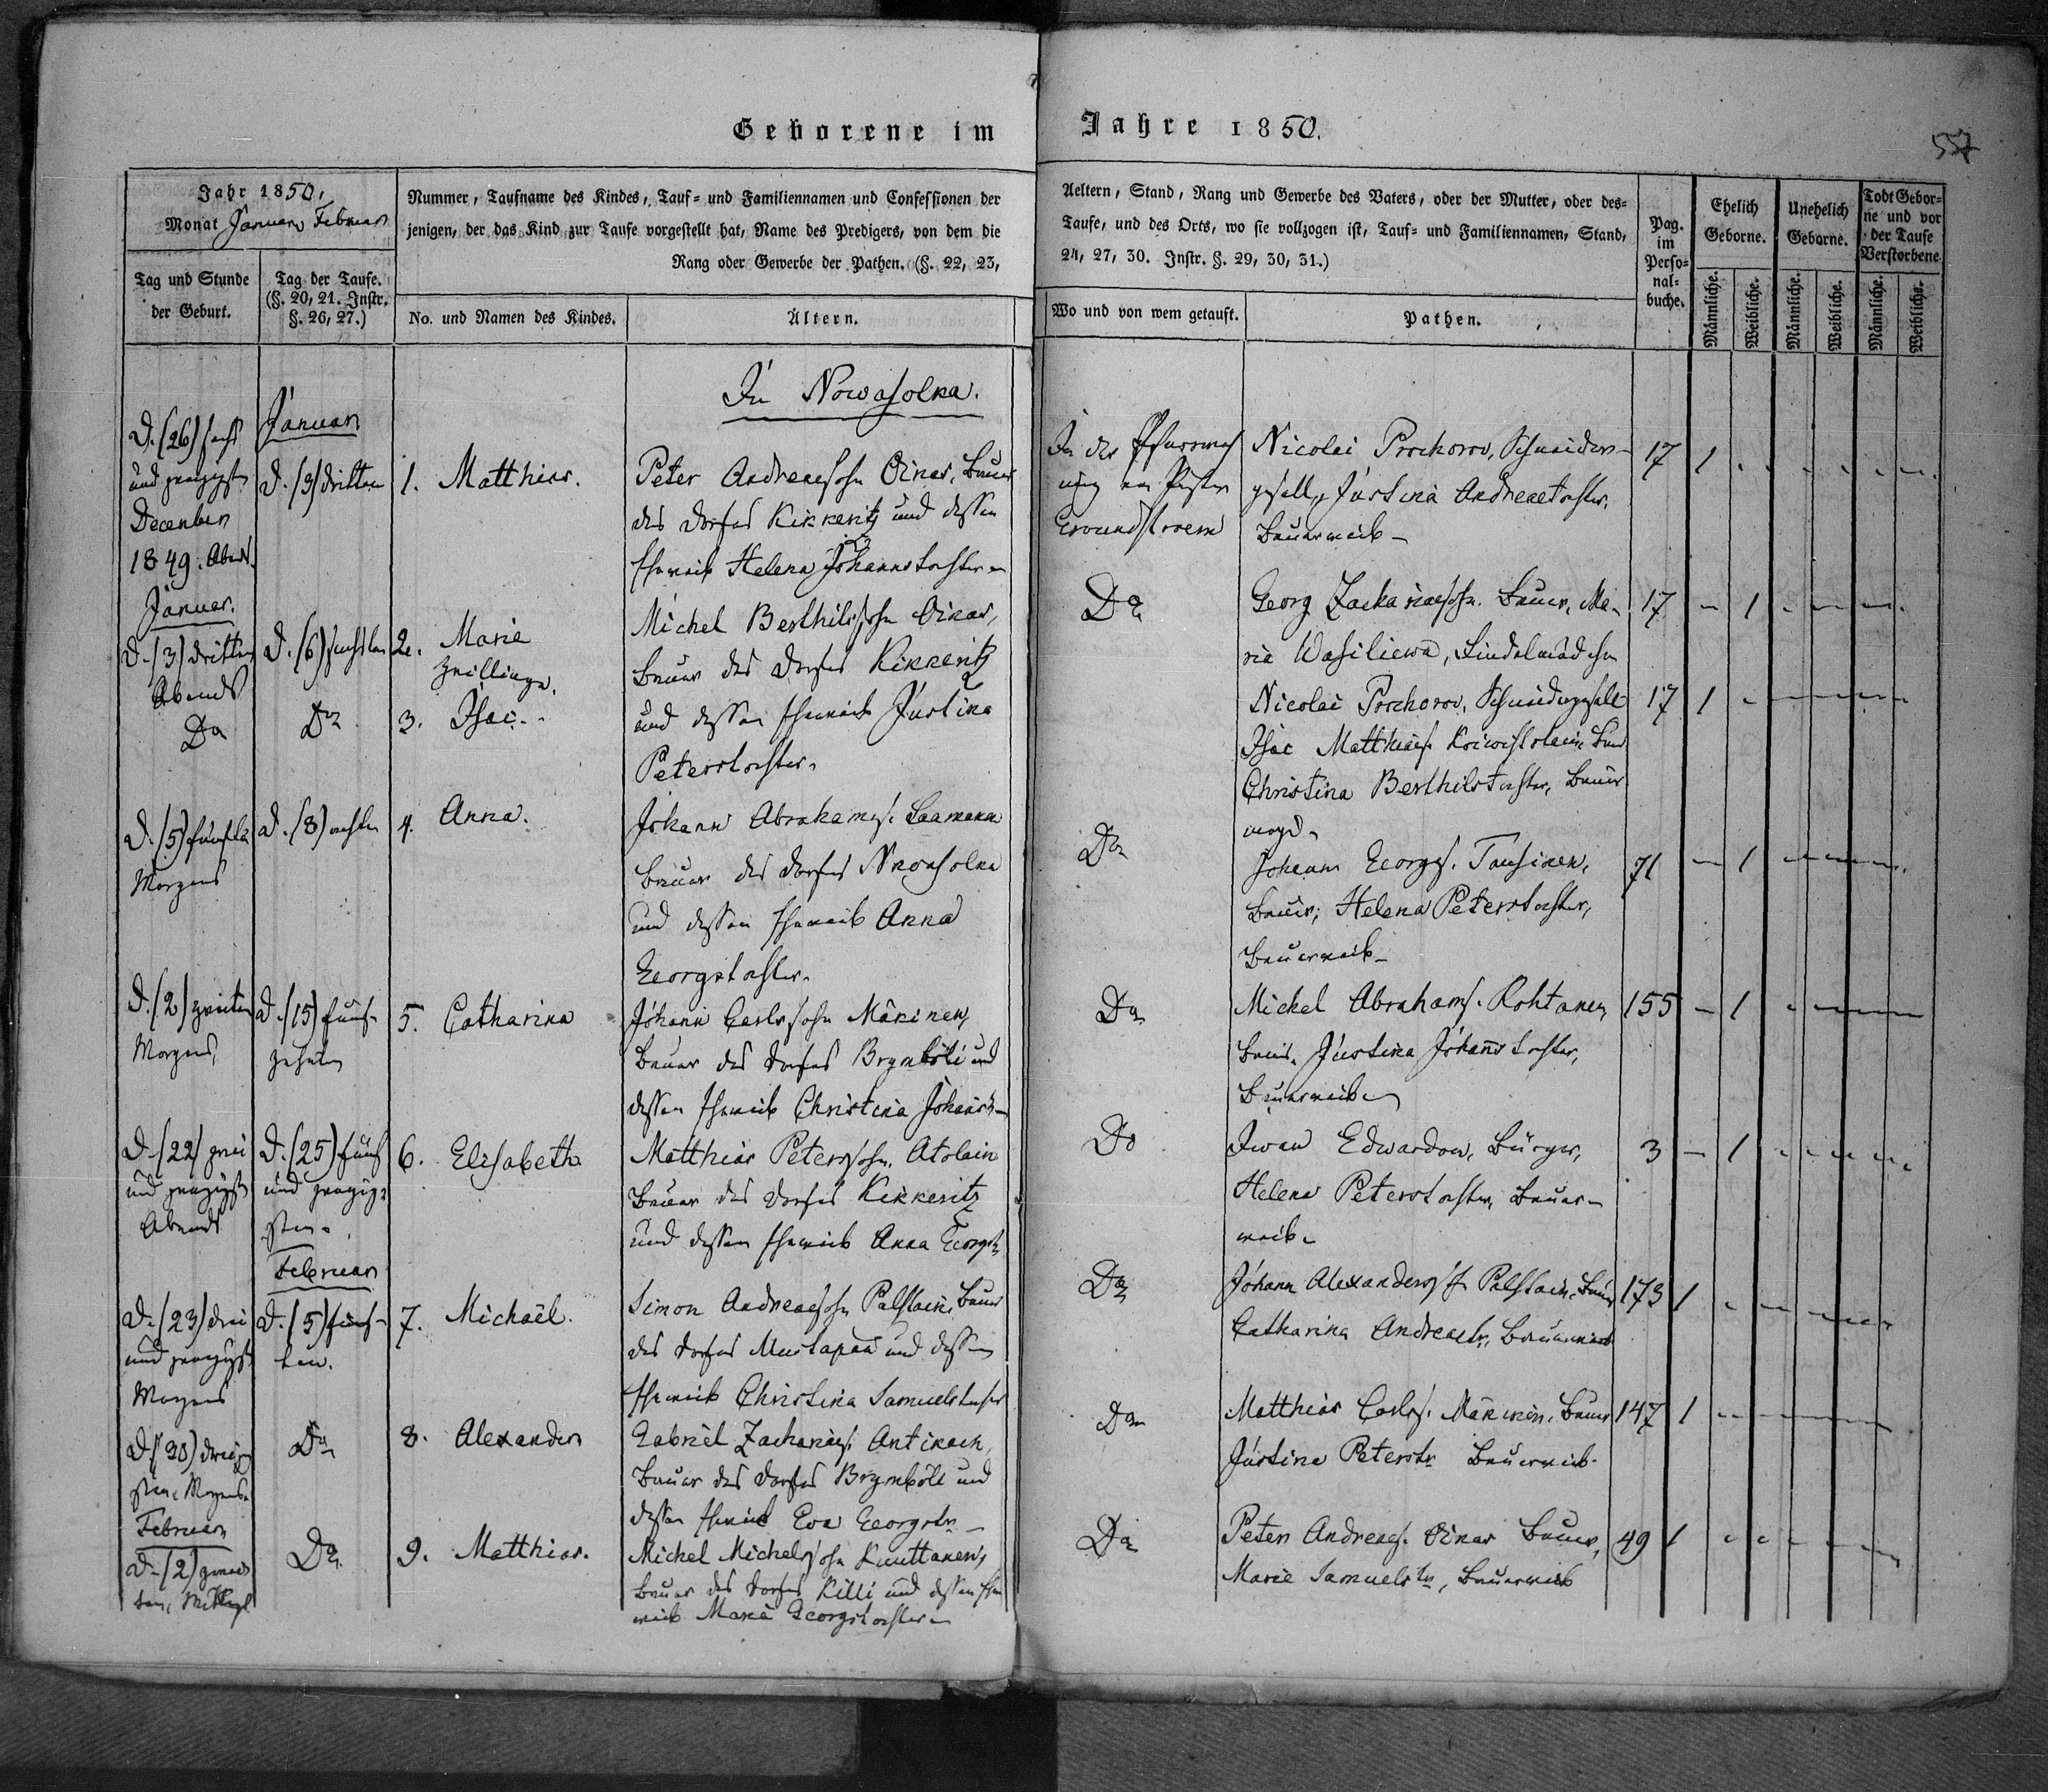 Geborene im Jahre 1850.
557
Jahr 1850,
Monat Januar, Februar
Tag und Stunde
der Geburt.
Tag der Taufe.
(§. 20, 21. Instr.
§. 26, 27.)
Nummer, Taufname des Kindes, Tauf- und Familiennamen und Confessionen der
jenigen, der das Kind zur Taufe vorgestellt hat, Name des Predigers, von dem die
Rang oder Gewerbe der Pathen. (§. 22, 23,
No. und Namen des Kindes.
Ältern.
Aeltern, Stand, Rang und Gewerbe des Vaters, oder der Mutter, oder des-
Taufe, und des Orts, wo sie vollzogen ist, Tauf- und Familiennamen, Stand,
24, 27, 30. Instr. §. 29, 30, 31.)
Wo und von wem getauft.
Pathen.
Pag.
im
Perso-
nal-
buche.
Ehelich
Geborne.
Unehelich
Geborne.
Todt Gebor-
ne und vor
der Taufe
Verstorbene
Männliche.
Weibliche.
Männliche.
Weibliche.
Männliche.
Weibliche.
In Nowasolka.
D. (26) sechs
und zwanzigsten
December
1849. Abends.
Januar
D. (3) dritten
1. Matthias.
Peter Andreassohn Oinas, Bauer
des Dorfes Kikkeritz und dessen
Eheweib Helena Johannstochter
In der
Pastor
Nicolai Prochorov, Schneider-
gesell, Justina Andreastochter,
Bauerweib
17 1 - - - - -
Januar.
D. (3) dritten
Abends
D. (6) sechsten
2. Maria
Zwillinge.
Michel Berthilssohn Oinas,
Bauer des Dorfes Kikkeritz
Do
Georg Zachariassohn. Bauer, Ma-
ria Wasiliewa, Findelmädchen
17 - 1 - - - -
Do
Do
3. Isac.
und dessen Eheweib Justina
Peterstochter.
Nicolai Prochorov, Schneidergesell
Isac Matthias. Bauer
Christina Berthilstochter, Bauer
magd.
17 1 - - - - -
D. (5) fünften
Morgens
D. (8) achten
4. Anna.
Johann Abrahams. Saamann
Bauer des Dorfes Nowasolka
und dessen Eheweib Anna
Georgstochter.
Do
Johann Georgs. Tansinen,
Bauer, Helena Peterstochter,
Bauerweib
71 - 1 - - - -
D. (2) zweiten
Morgens,
D. (15) fünf-
zehnten
5. Catharina
Johann Carlssohn Mäkinen,
Bauer des Dorfes Brynböli und
dessen Eheweib Christina Johannst
Do
Michel Abrahams. Rohtanen,
Bauer. Justina Johannstochter,
Bauerweib
155 - 1 - - - -
D. (22) zwei
und zwanzigsten
Abends
D. (25) fünf
und zwanzig-
sten.
6. Elisabeth
Matthias Peterssohn. Atolain
Bauer des Dorfes Kikkeritz
und dessen Eheweib Anna Georgstr
Do
Iwan Edwardow, Bürger,
Helena Peterstochter, Bauer-
weib.
3 - 1 - - - -
D. (23) drei
und zwanzigsten
Morgens
Februar
D. (5) fünf-
ten.
7. Michaël.
Simon Andreassohn Palstain, Bauer
des Dorfes Mustapää und dessen
Eheweib Christina Samuelstochter
Do
Johann Alexanders. Palstain, Bauer
Catharina Andreastr, Bauerweib
173 1 - - - - -
D. (30) dreißig
sten, Morgens
Do
8. Alexander
Gabriel Zacharias. Antikach,
Bauer des Dorfes Brynböli und
dessen Eheweib Eva Georgstr
Do
Matthias Carls. Mäkinen, Bauer
Justina Peterstr Bauerweib.
147 1 - - - - -
Februar
D. (2) zwei
ten, Mittags
Do
9. Matthias.
Michel Michelssohn Kuuttanen,
Bauer des Dorfes Killi und dessen Ehe
weib Maria Georgstochter
Do
Peter Andreas. Oinas Bauer,
Maria Samuelstr, Bauerweib
49 1 - - - - -